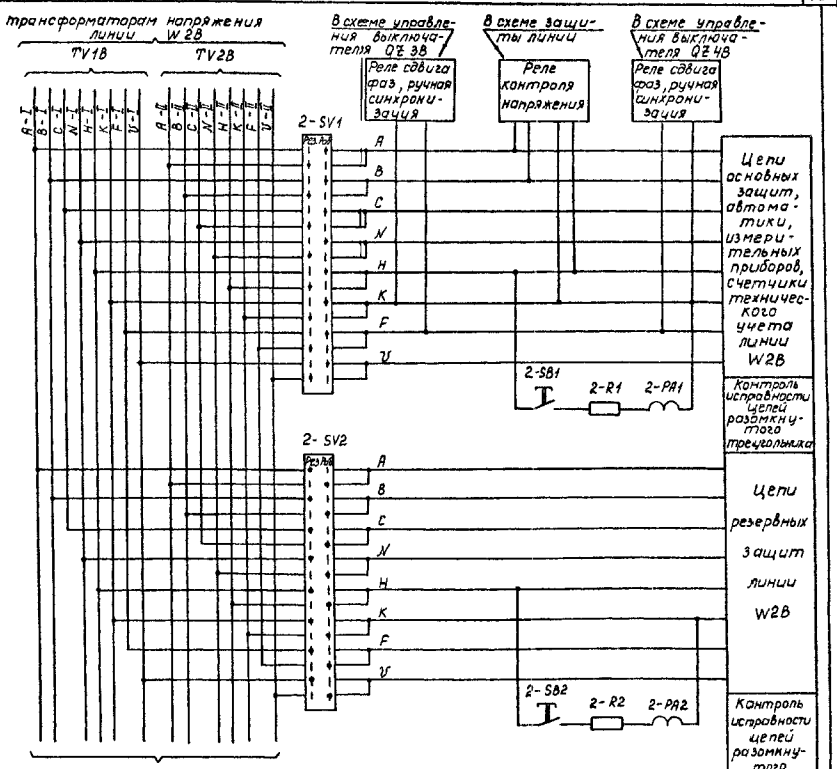 трансформаторам напряжения
линии W2В
TV1В
TV2В
A-I
B-I
C-I
N-I
H-I
K-I
F-I
U-I
A-II
B-II
C-II
N-II
H-II
K-II
F-II
U-II
В схеме управле-
ния выключа-
теля QZ3В
Реле сдвига
фаз, ручная
синхрони-
зация
В схеме защи-
ты линии
Реле
контроля
напряжения
В схеме управле-
ния выключа-
теля QZ4В
Реле сдвига
фаз, ручная
синхрони-
зация
2-SV1
Рез Раб
A
B
C
N
H
K
F
U
Цепи
основных
защит,
автома-
тики,
измери-
тельных
приборов,
счетчики
техничес-
кого
учета
линии
W2В
2-SB1
2-R1
2-PA1
Контроль
исправности
цепей
разомкну-
того
треугольника
2-SV2
Рез Раб
A
B
C
N
H
K
F
U
Цепи
резервных
защит
линии
W2В
2-SB2
2-R2
2-PA2
Контроль
исправности
цепей
разомкну-
того